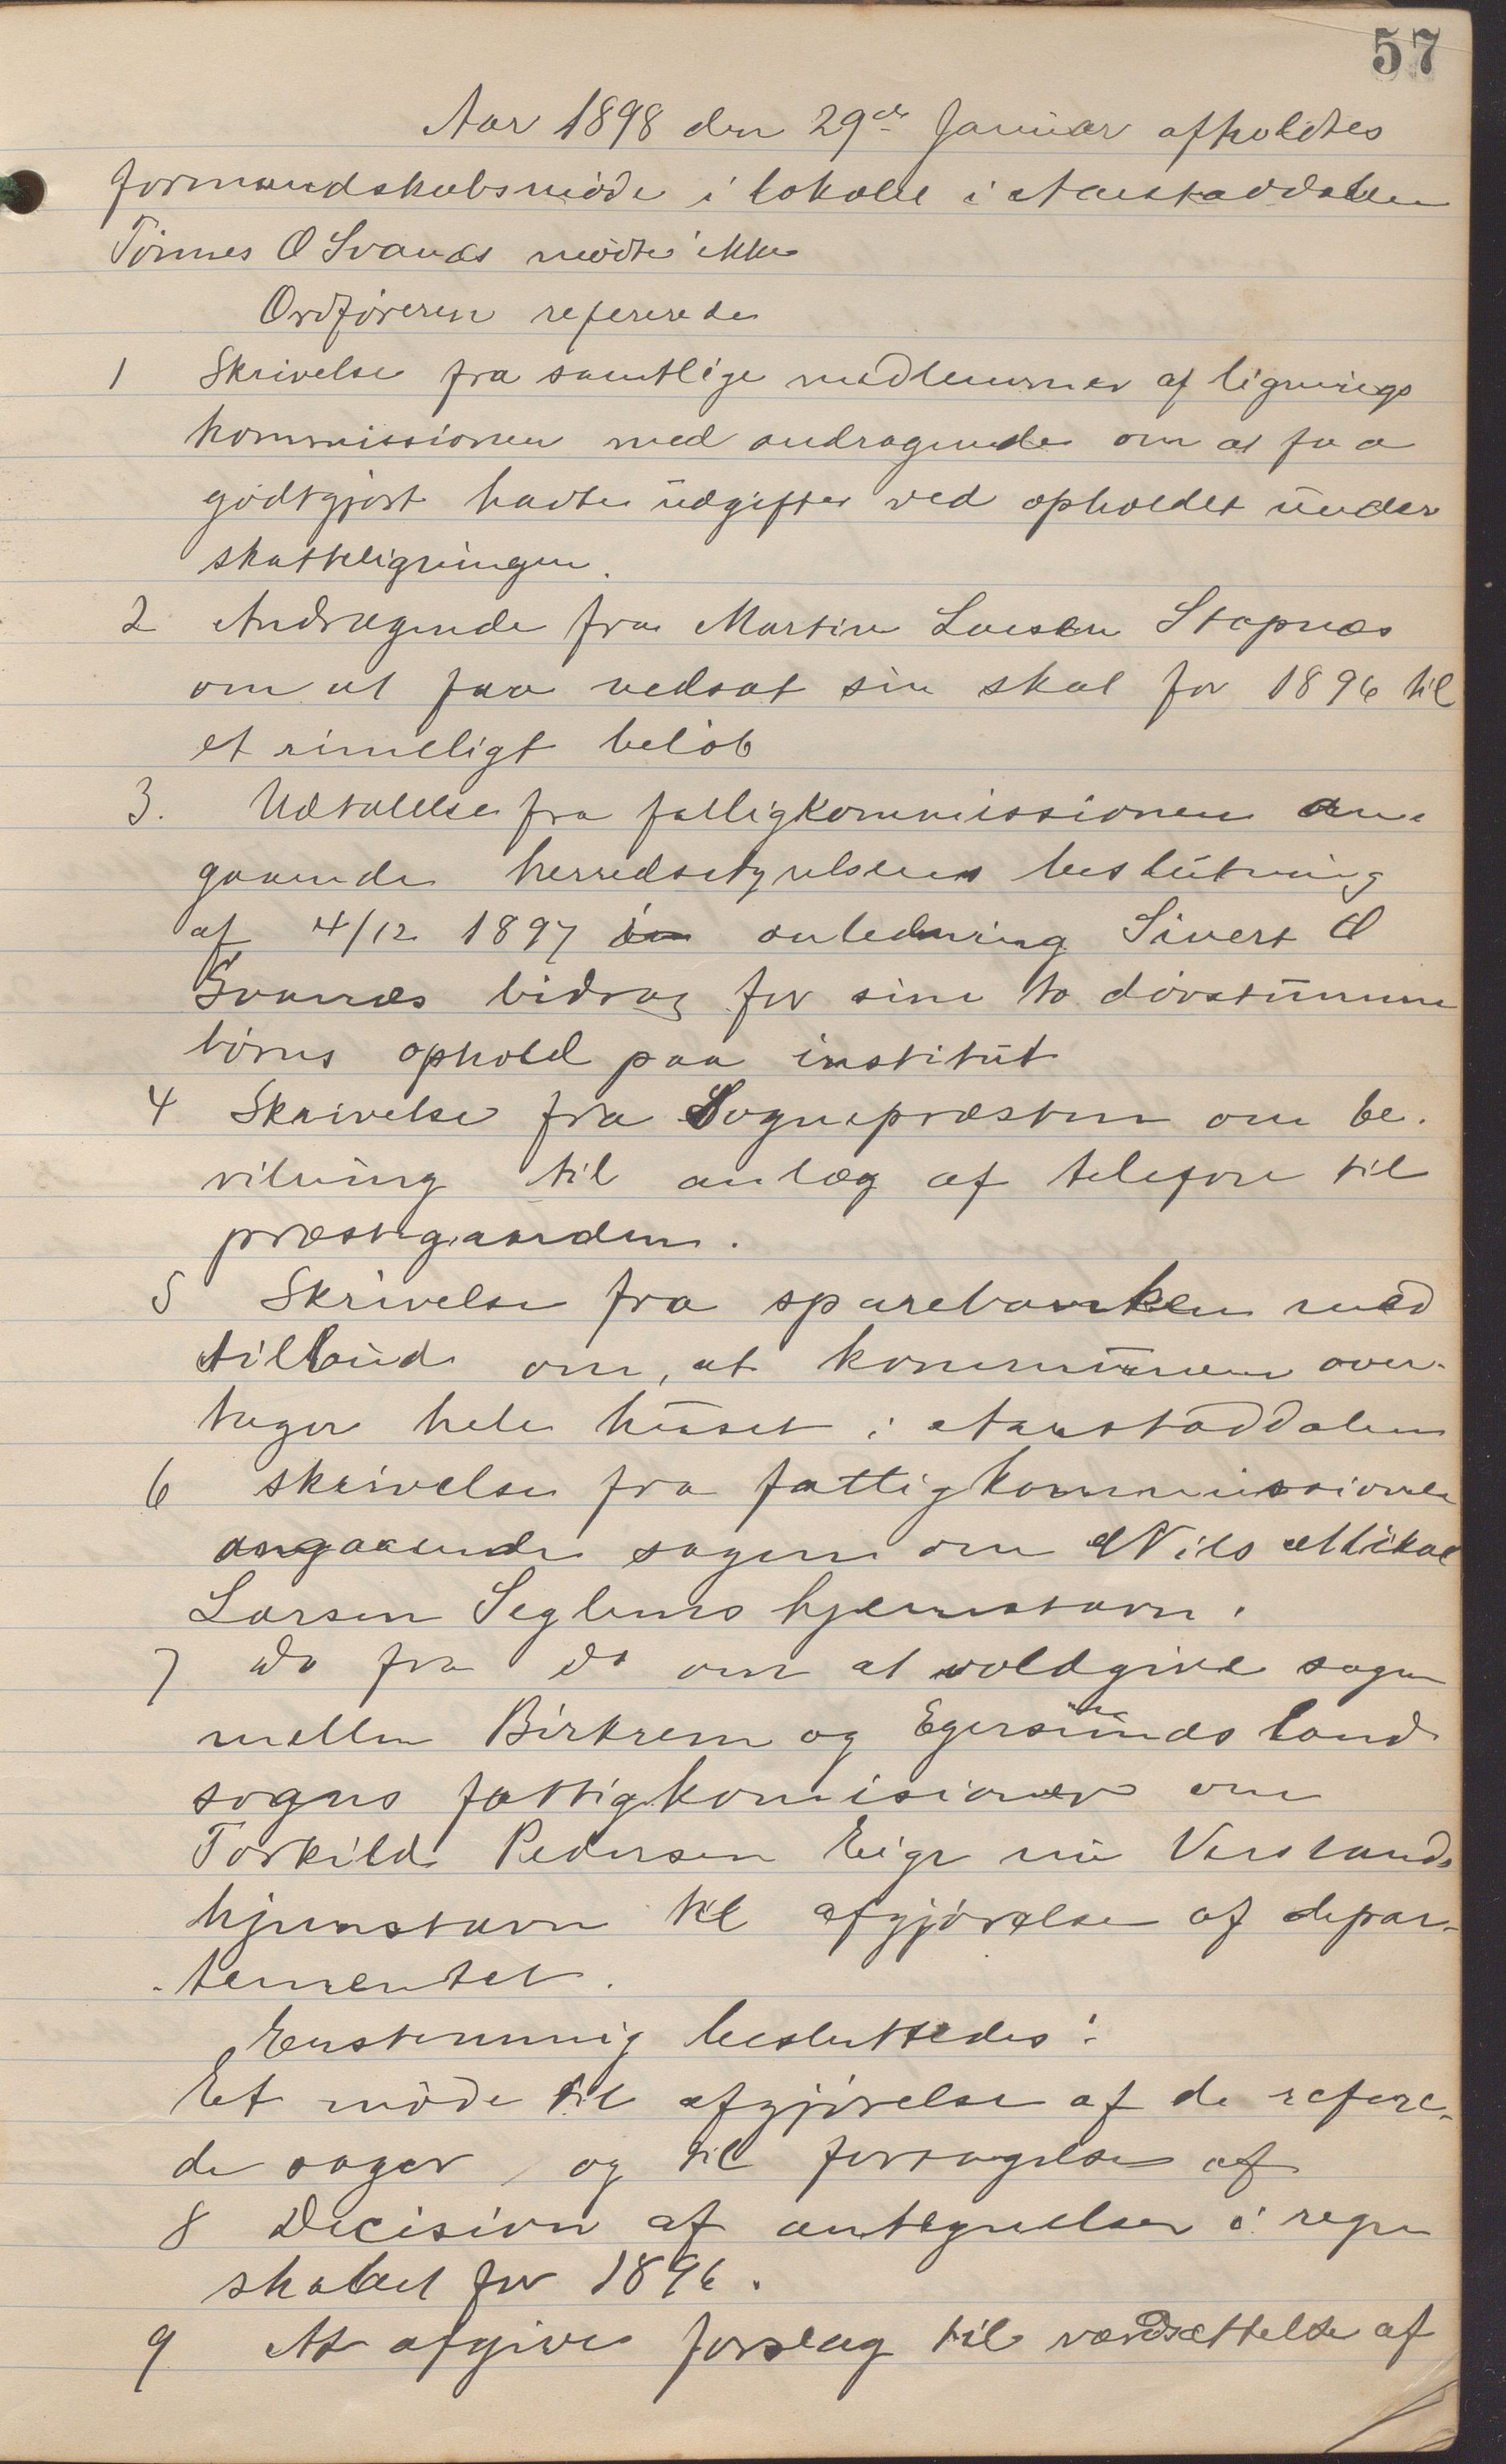 57
Aar 1898 den 29de Januar afholdtes
formandskabsmöde i lokalet i Aarstaddalen
Tönnes O Svanæs mödte ikke
Ordföreren refererede
1 Skrivelse fra samtlige medlemmer af lignings
kommissionen med andragende om at faa
godtgjort havte udgifter ved opholdet under
skatteligningen.
2 Andragende fra Martin Larsen Stapnæs
om at faa nedsat sin skat for 1896 til
et rimeligt belöb
3. Udtalelse fra fattigkommissionen an-
gaaende herredsstyrelsens beslutning
af 4/12 1897 i anledning Sivert O
Svanæs bidrag for sine to dövstumme
börns ophold paa institut
4 Skrivelse fra Sognepræsten om be-
vilning til anlæg af telefon til
præstegaarden.
5 Skrivelse fra sparebanken med
tilbud om, at kommunen over-
tager hele huset i Aarstaddalen
6 skrivelse fra fattigkommissionen
angaaende sagen om Nils Mikal
Larsen Seglems hjemstavn.
7 Do fra do om at voldgive sagen
mellem Birkrem og Egersunds land
sogns fattigkomisioner om
Torkild Pedersen Eige nu Versland
hjemstavn til afgjörelse af depar-
-tementet.
Enstemmig besluttedes:
Et möde til afgjörelse af de refere-
de sager, og til foretagelse af
8 Decision af antegnelser i regn
skabet for 1896.
9 At afgive forslag til værdsættelse af